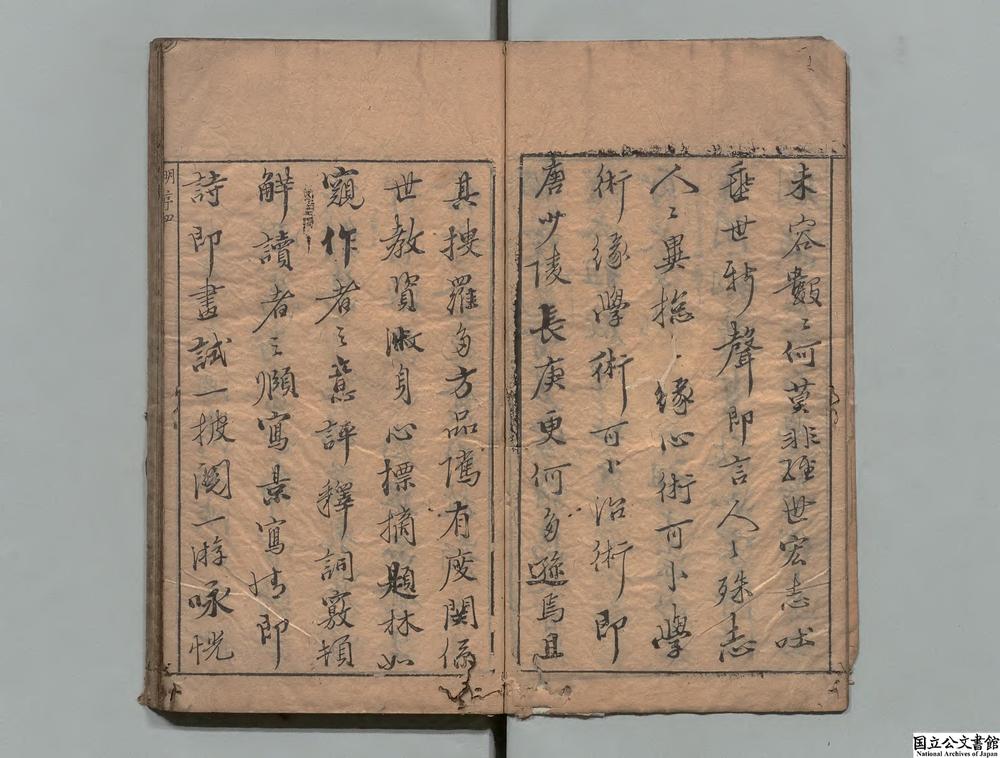 未容數〻何莫非経世宏志吐
垂世新聲即言人〻殊志
人〻異揔〻縁心術可卜學
術縁學術可卜治術即
唐少陵長庚更何多遜焉且
其搜羅多方品隲有度関係
世教資淑身心標摘題林如
窺作者之意評釋詞竅頓
觧讀者之頤寫景寫情即
詩即畫試一披閱一游咏恍
明 序 四
国立公文書館
National Archives of Japan